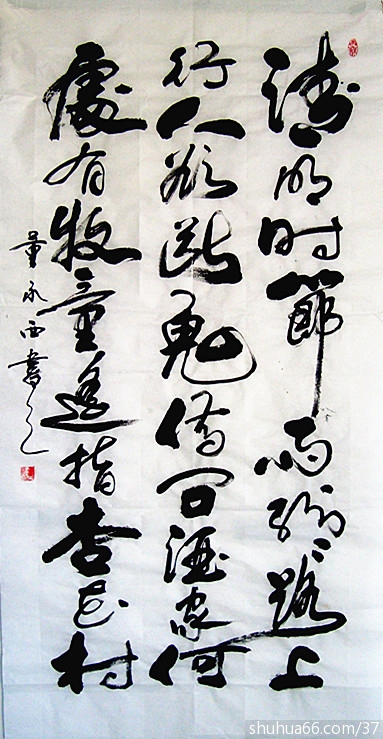 清明时節雨紛紛路上
行人欲断魂借问酒家何
處有牧童遥指杏花村
董永西書之
shuhua66.com/37